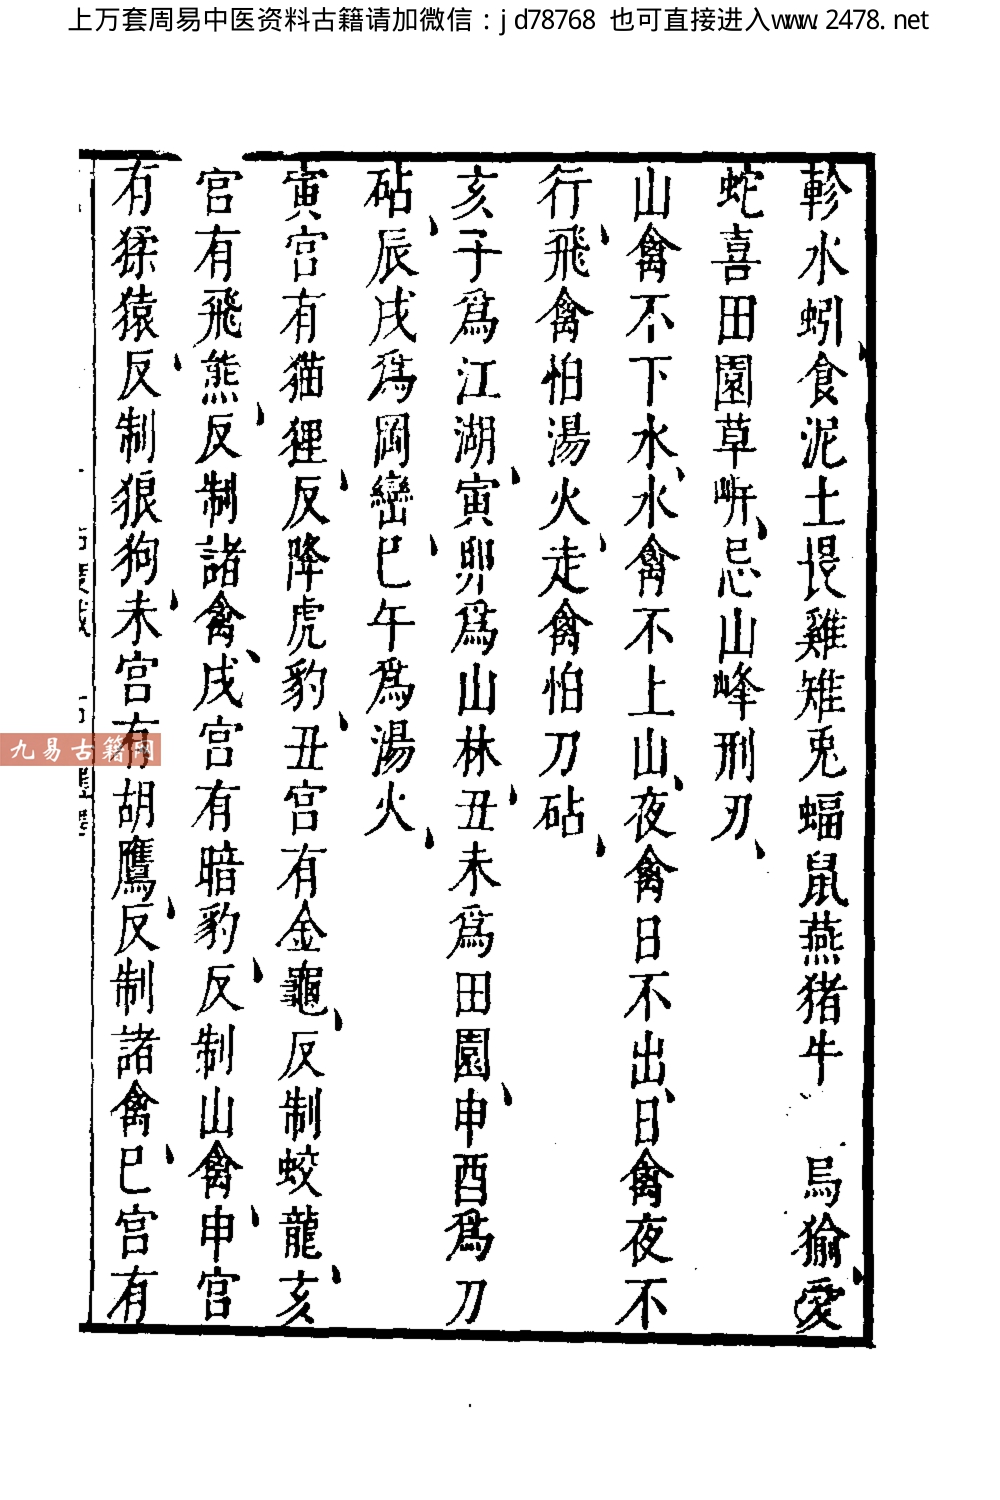 上万套周易中医资料古籍请加微信：jd78768 也可直接进入www.2478.net
軫水蚓食泥土畏雞雉兎蝠鼠燕猪牛 烏㺄愛
蛇喜田園草㟁忌山峰刑刃
山禽不下水水禽不上山夜禽日不出日禽夜不
行飛禽怕湯火走禽怕刀砧
亥子爲江湖寅卯爲山林丑未爲田園申酉爲刀
砧辰戌爲岡巒巳午爲湯火
寅宮有猫狸反降虎豹丑宮有金龜反制蛟龍亥
宮有飛熊反制諸禽戌宮有暗豹反制山禽申宮
有猱猿反制狼狗未宮有胡鷹反制諸禽巳宮有
九易古籍网